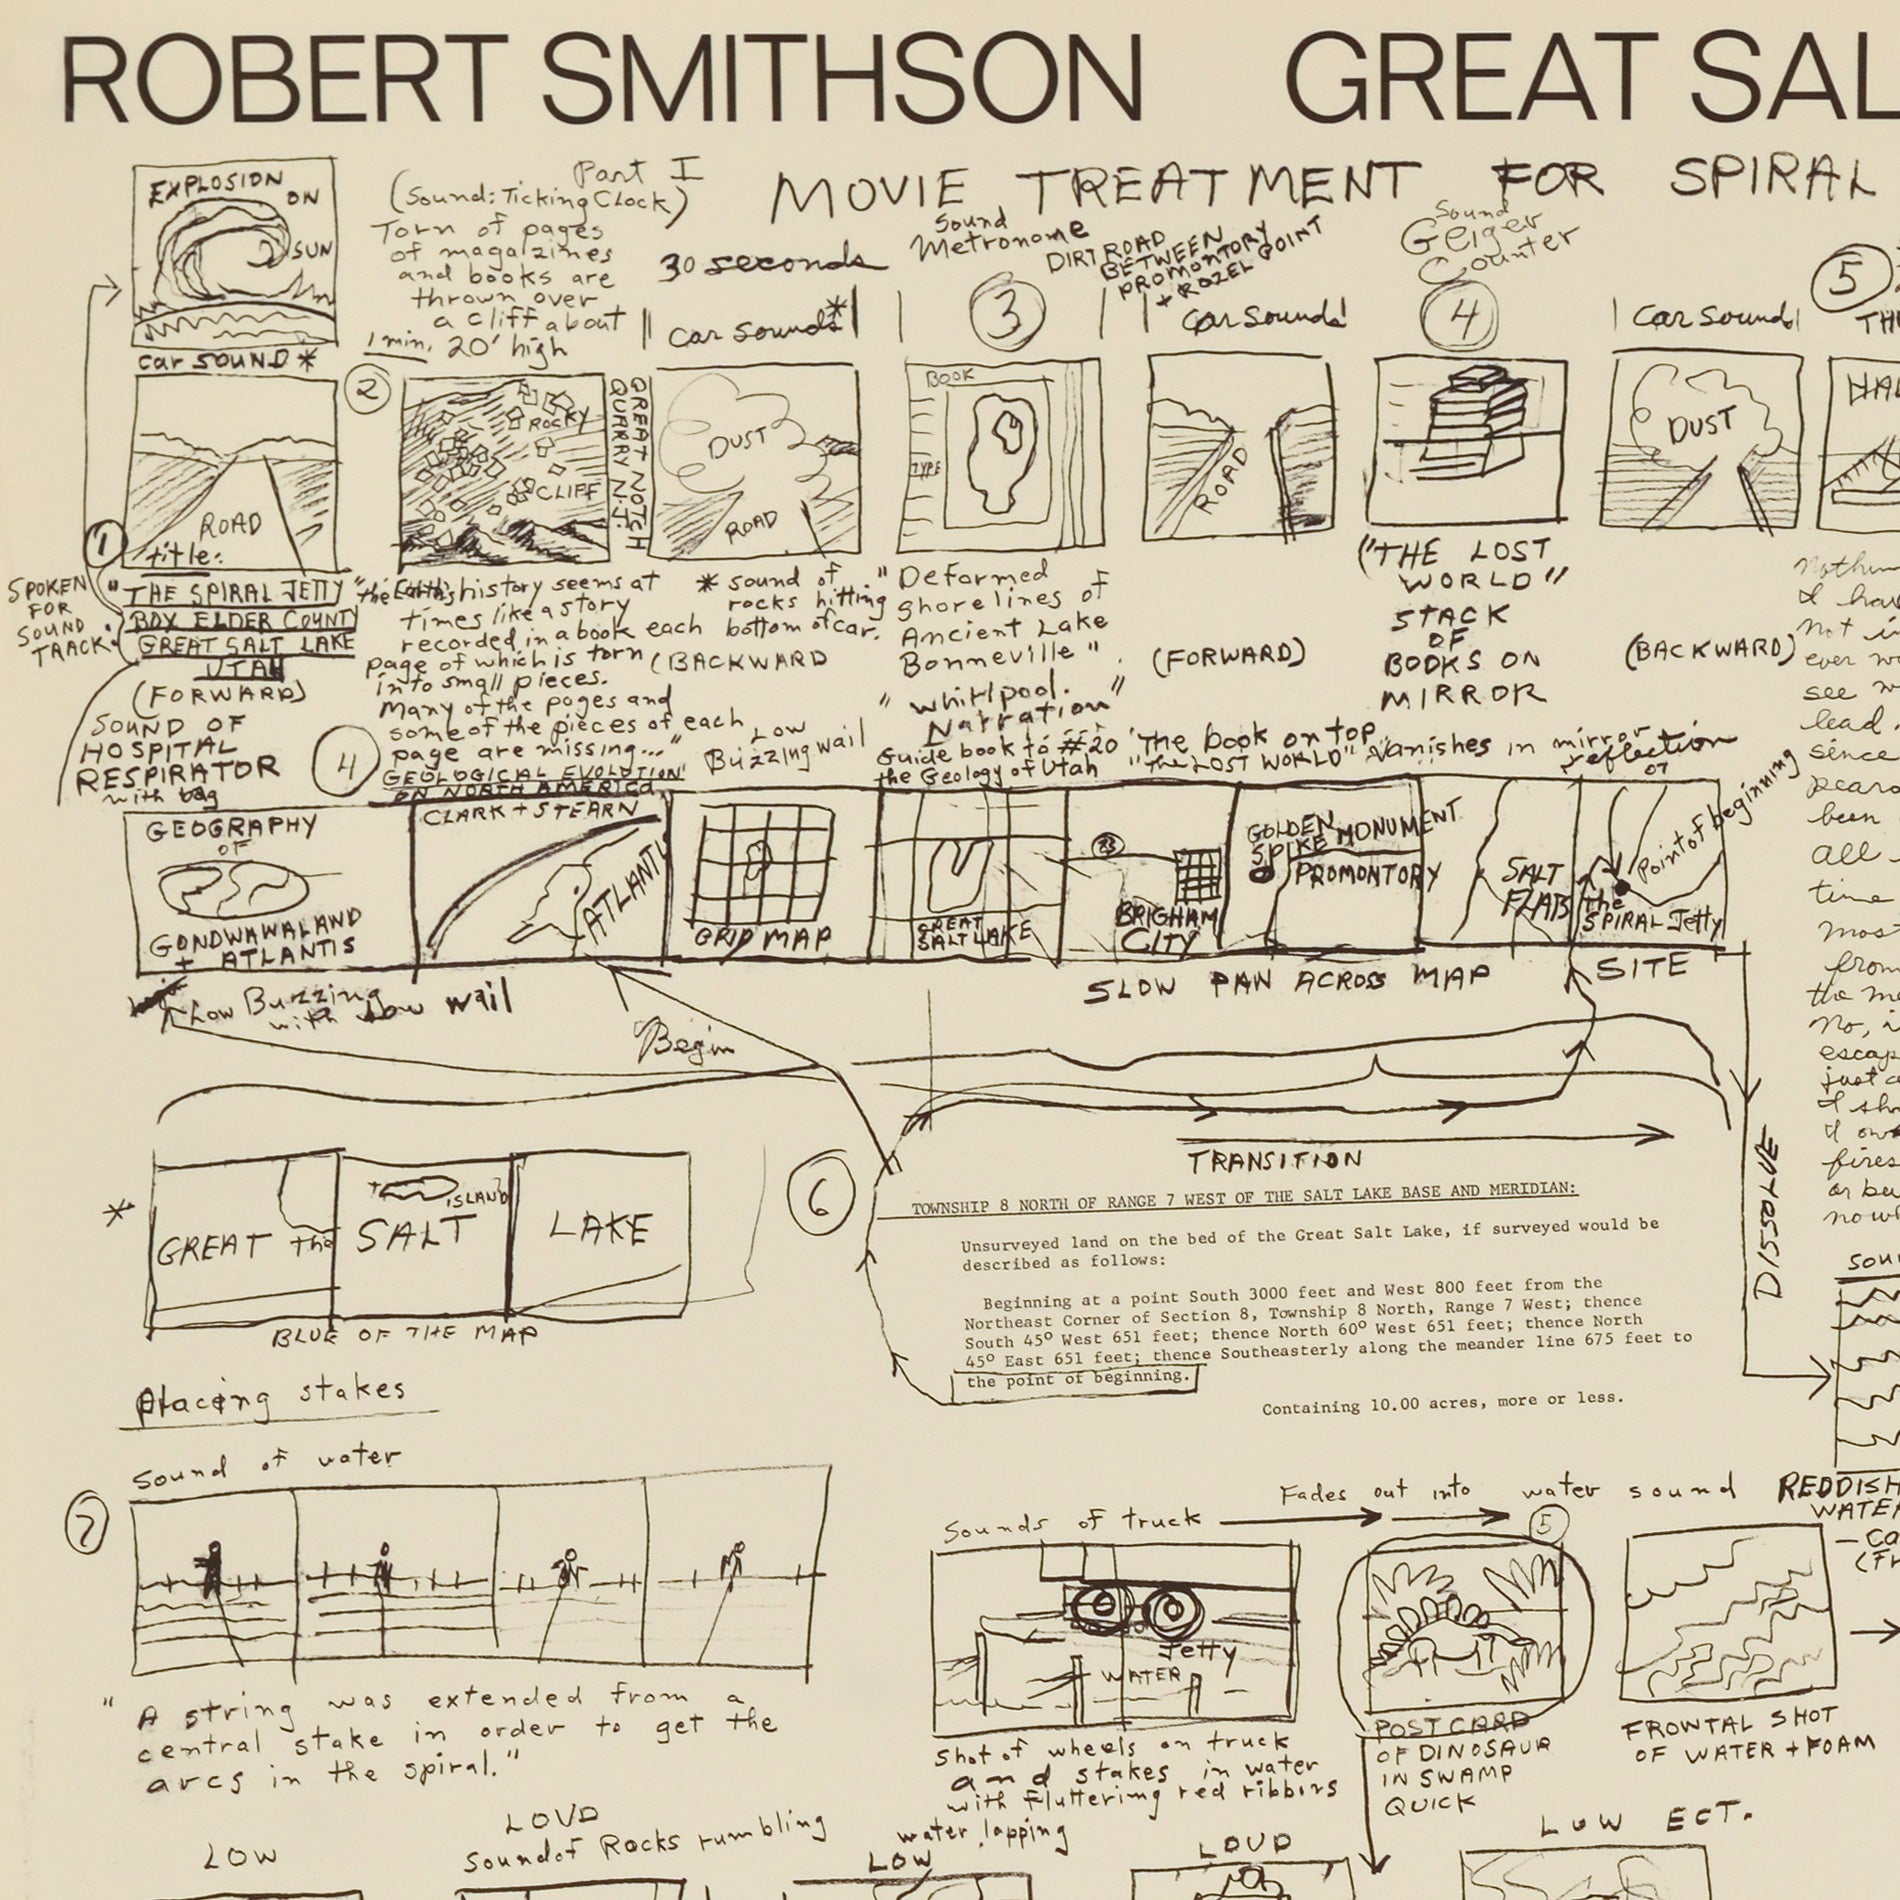 ROBERT SMITHSON GREAT SAL
MOVIE TREATMENT FOR SPIRAL
EXPLOSION
ON
SUN
car SOUND *
ROAD
1
title:
SPOKEN
FOR
SOUND
TRACK:
"THE SPIRAL JETTY"
BOX ELDER COUNTY
GREAT SALT LAKE
UTAH
(FORWARD)
SOUND OF
HOSPITAL
RESPIRATOR
with bag
Part I
(Sound: Ticking Clock)
Torn of pages
of magalzines
and books are
thrown over
a cliff about
1 min. 20' high
2
ROCKY
CLIFF
GREAT NOTCH
QUARRY N.J.
the Earth's history seems at
times like a story
recorded in a book each
page of which is torn
into small pieces.
Many of the pages and
some of the pieces of each
page are missing..."
4
GEOLOGICAL EVOLUTION
ON NORTH AMERICA
CLARK + STEARN
30 seconds
car sounds*
DUST
ROAD
* sound of
rocks hitting
bottom of car.
(BACKWARD
Low
Buzzing wail
Sound
Metronome
3
BOOK
TYPE
"Deformed
shorelines of
Ancient Lake
Bonneville".
"whirlpool."
Narration
Guide book to #20
the Geology of Utah
DIRT ROAD
BETWEEN
PROMONTORY
+ ROZEL POINT
car sounds
ROAD
(FORWARD)
Sound
Geiger
Counter
4
("THE LOST
WORLD"
STACK
OF
BOOKS ON
MIRROR
The book on top
"The LOST WORLD" vanishes in mirror
reflection
car sounds
DUST
(BACKWARD)
5
GEOGRAPHY
OF
GONDWAWALAND
+ ATLANTIS
ATLANTI
GRID MAP
GREAT
SALT LAKE
BRIGHAM
CITY
GOLDEN
SPIKE MONUMENT
PROMONTORY
SALT
FLATS
Point of beginning
the
SPIRAL Jetty
Low Buzzing
with low wail
Begin
SLOW PAN ACROSS MAP
SITE
DISSOLVE
TRANSITION
*
GREAT the
ISLAND
SALT
LAKE
BLUE OF THE MAP
6
TOWNSHIP 8 NORTH OF RANGE 7 WEST OF THE SALT LAKE BASE AND MERIDIAN:
Unsurveyed land on the bed of the Great Salt Lake, if surveyed would be
described as follows:
Beginning at a point South 3000 feet and West 800 feet from the
Northeast Corner of Section 8, Township 8 North, Range 7 West; thence
South 45º West 651 feet; thence North 60º West 651 feet; thence North
45º East 651 feet; thence Southeasterly along the meander line 675 feet to
the point of beginning.
Containing 10.00 acres, more or less.
Placing stakes
Sound of water
7
"A string was extended from a
central stake in order to get the
arcs in the spiral."
Sounds of truck
Fades out into water sound
Jetty
WATER
Shot of wheels on truck
and stakes in water
with fluttering red ribbons
5
POSTCARD
OF DINOSAUR
IN SWAMP
QUICK
REDDISH
WATER
FRONTAL SHOT
OF WATER + FOAM
LOW
LOUD
Sound of Rocks rumbling
water lapping
LOW
LOUD
LOW ECT.